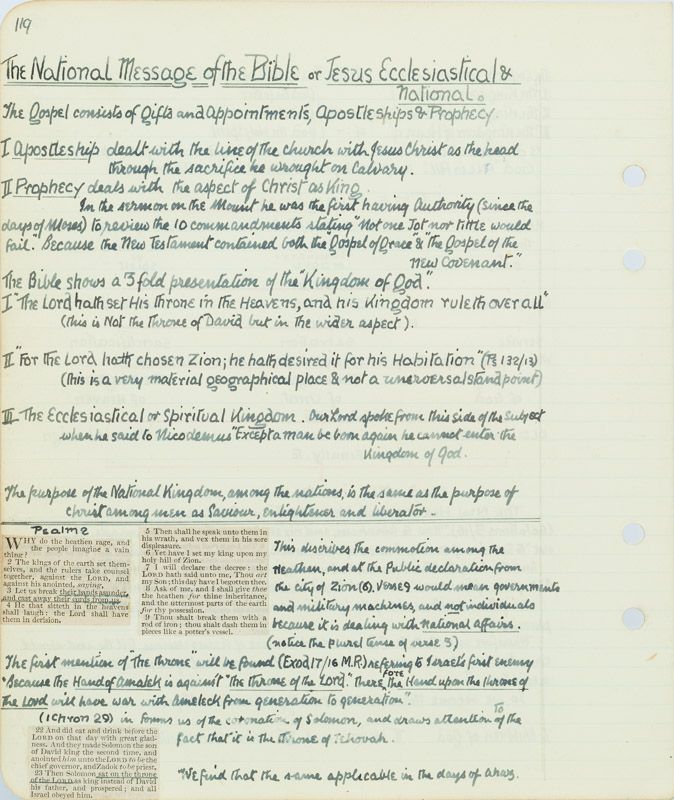 119
The National Message of the Bible or Jesus Ecclesiastical &
National.
The Gospel consists of Gifts and Appointments, Apostleships & Prophecy.
I Apostleship dealt with the line of the church with Jesus Christ as the head
through the sacrifice he wrought on Calvary.
II Prophecy deals with the aspect of Christ as King.
In the sermon on the Mount he was the first having Authority (since the
days of Moses) to review the 10 commandments stating "Not one Jot nor tittle would
fail." Because the New Testament contained both the Gospel of Grace & "the Gospel of the
new Covenant."
The Bible shows a 3 fold presentation of the "Kingdom of God".
I "The Lord hath set His throne in the Heavens, and his Kingdom ruleth over all"
(this is Not the throne of David but in the wider aspect).
II "For the Lord hath chosen Zion; he hath desired it for his Habitation" (Ps 132/13)
(This is a very material geographical place & not a unerversal stand point)
III The Ecclesiastical or Spiritual Kingdom. Our Lord spoke from this side of the subject
when he said to Nicodemus "Except a man be born again he cannot enter the
Kingdom of God.
The purpose of the National Kingdom, among the nations, is the same as the purpose of
Christ among men as Saviour, enlightener and liberator.
Psalm 2
WHY do the heathen rage, and
the people imagine a vain
thing?
2 The kings of the earth set them-
selves, and the rulers take counsel
together, against the LORD, and
against his anointed, saying,
3 Let us break their bands asunder,
and cast away their cords from us.
4 He that sitteth in the heavens
shall laugh: the Lord shall have
them in derision.
5 Then shall he speak unto them in
his wrath, and vex them in his sore
displeasure.
6 Yet have I set my king upon my
holy hill of Zion.
7 I will declare the decree: the
LORD hath said unto me, Thou art
my Son; this day have I begotten thee.
8 Ask of me, and I shall give thee
the heathen for thine inheritance,
and the uttermost parts of the earth
for thy possession.
9 Thou shalt break them with a
rod of iron; thou shalt dash them in
pieces like a potter's vessel.
This discribes the commotion among the
Heathan, and at the Public declaration from
the city of Zion (6). Verse 9 would mean governments
and military machines, and not individuals
because it is dealing with National affairs.
(notice the plurel tense of verse 3)
The first mention of "the throne" will be found (Exod 17/16 M.R.) refering to Israel's first enemy
"Because the Hand of Amalek is against "the throne of the Lord." There fore the Hand upon the throne of
the Lord will have war with Ameleck from generation to generation".
(1 chron 29) in forms us of the coronation of Solomon, and draws attention to the
fact that it is the throne of Jehovah.
22 And did eat and drink before the
LORD on that day with great glad-
ness. And they made Solomon the son
of David king the second time, and
anointed him unto the LORD to be the
chief governor, and Zadok to be priest.
23 Then Solomon sat on the throne
of the LORD as king instead of David
his father, and prospered; and all
Israel obeyed him.
"We find that the same applicable in the days of Ahaz.